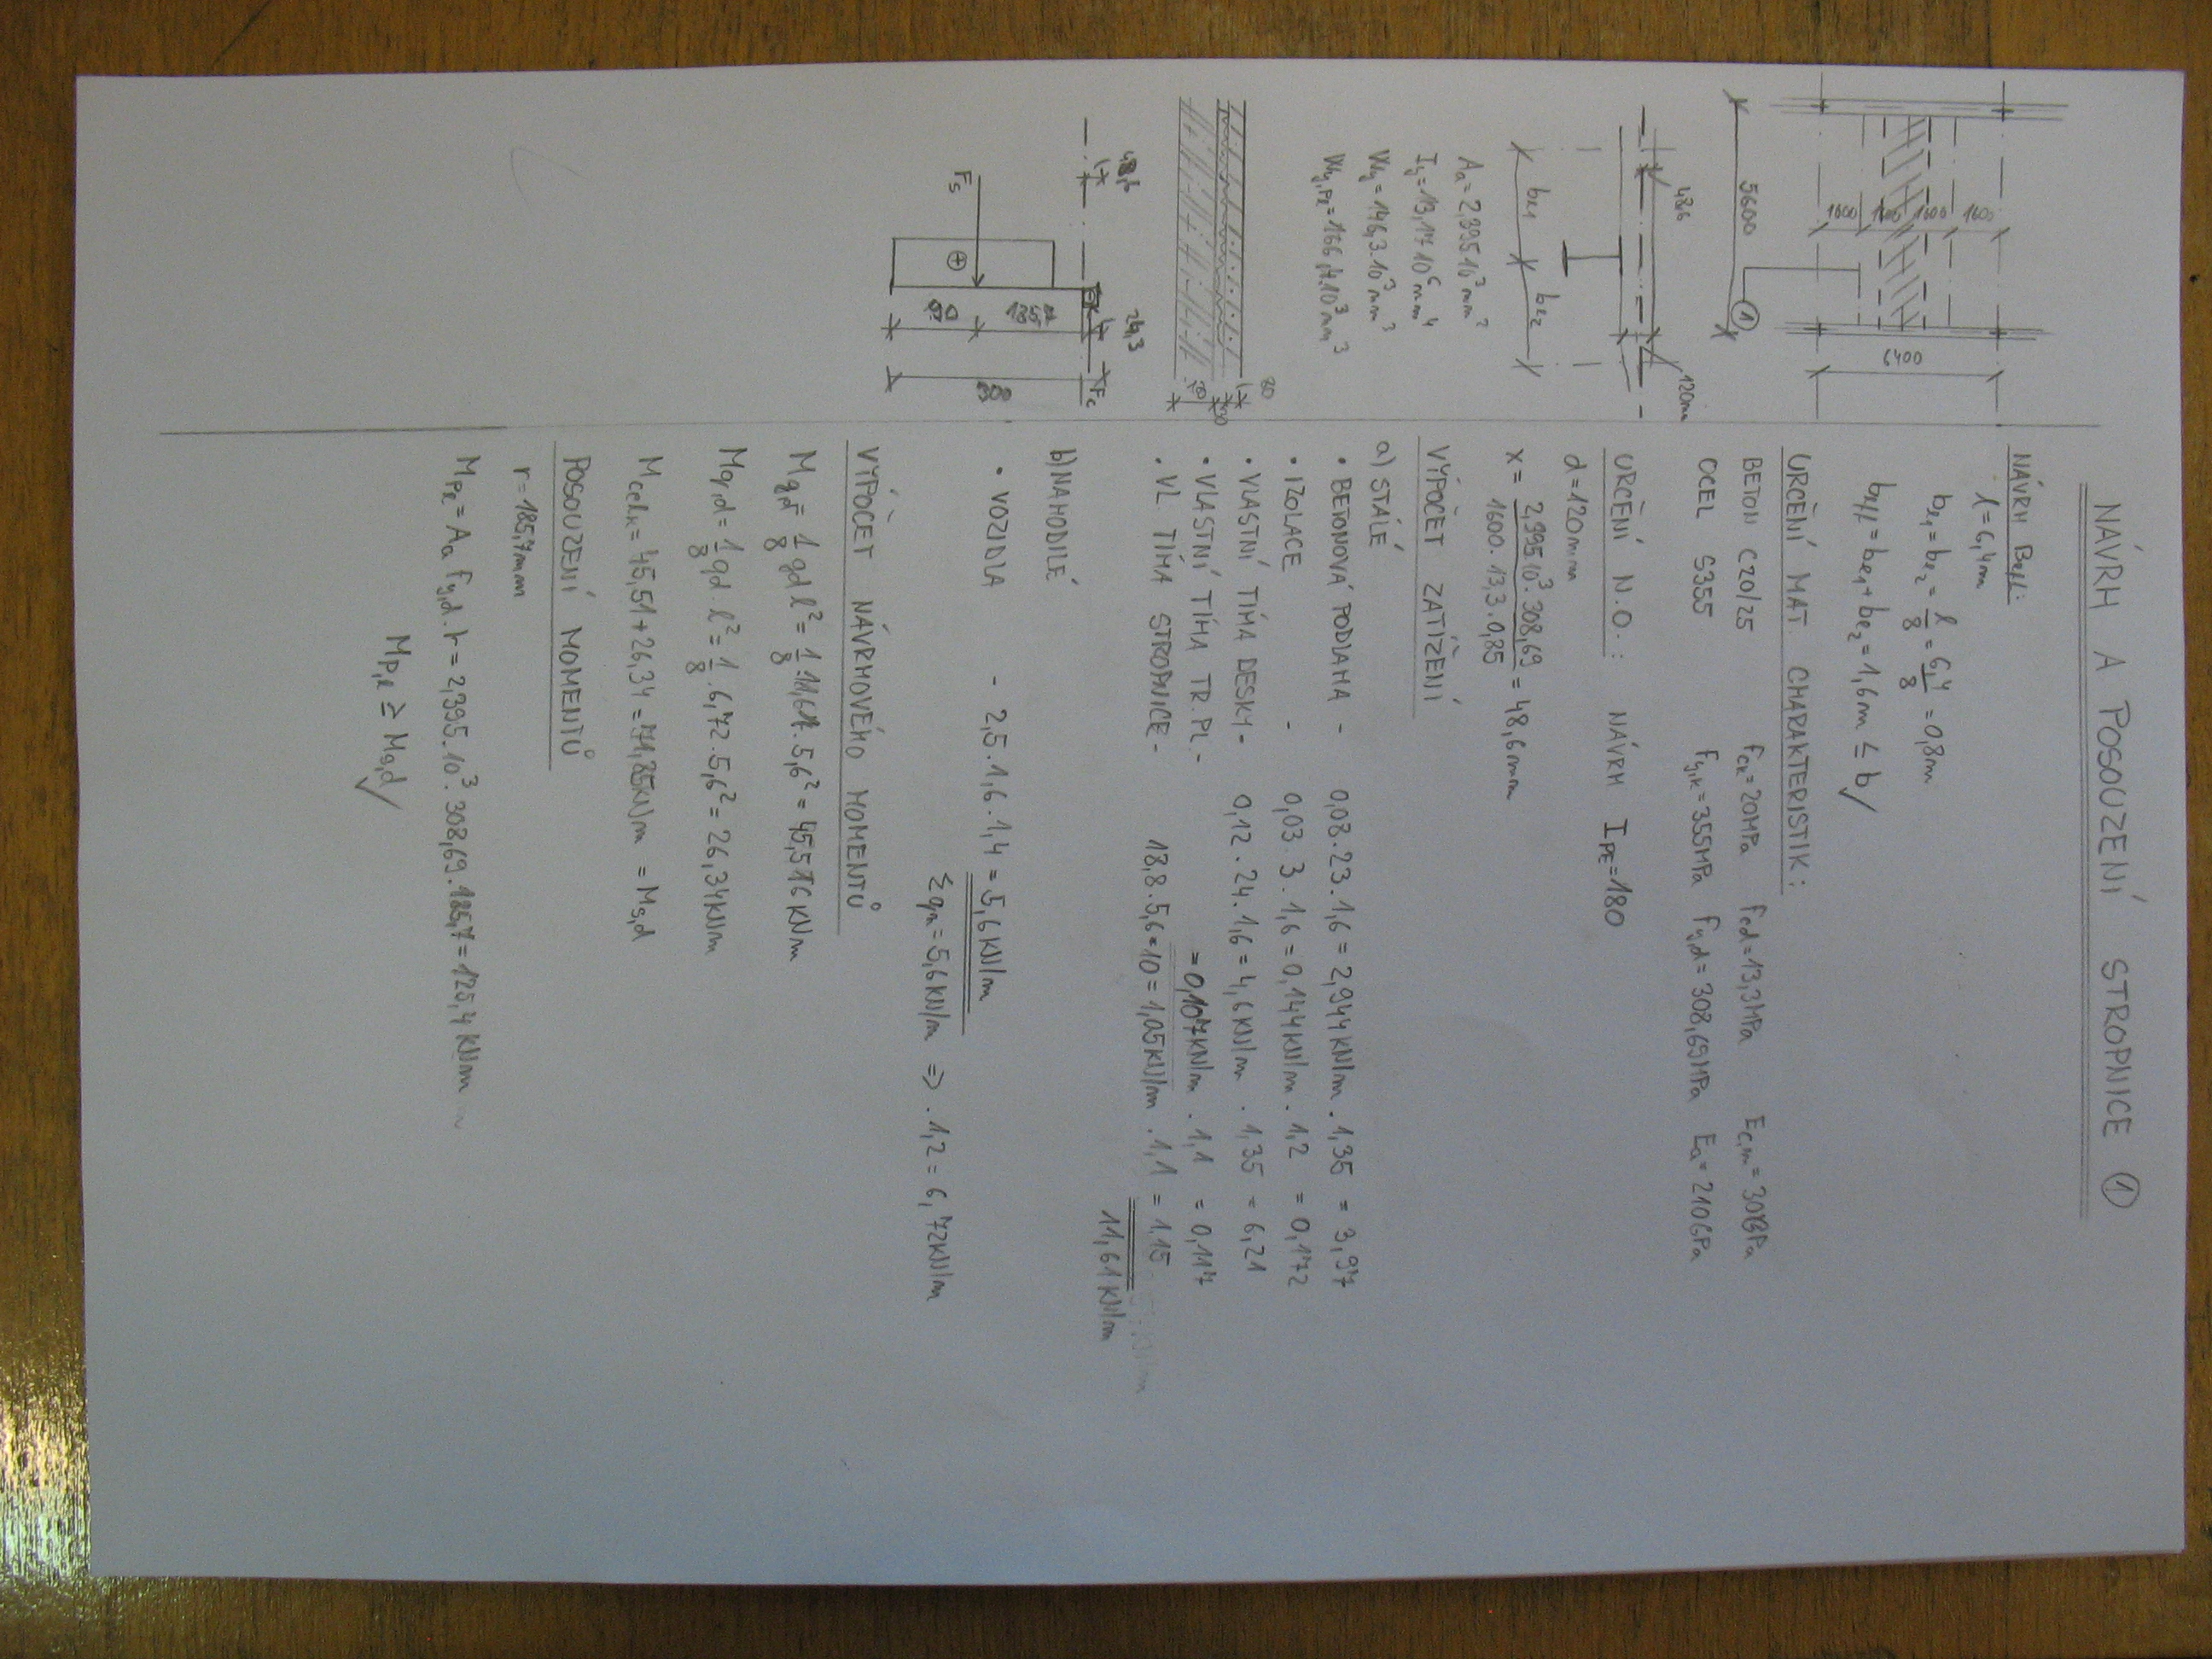 NÁVRH A POSOUZENÍ STROPNICE ①
NÁVRH Beff:
l=6,4m
be1=be2=l/8=6,4/8=0,8m
beff=be1+be2=1,6m≤b✓
URČENÍ MAT CHARAKTERISTIK:
BETON C20/25 fck=20MPa fcd=13,3MPa Ec,m=30GPa
OCEL S355 fy,k=355MPa fy,d=308,69MPa Ea=210GPa
URČENÍ N.O.: NÁVRH IPE=180
d=120mm
x=2,395.10³.308,69/1600.13,3.0,85=48,6mm
VÝPOČET ZATÍŽENÍ
a) STÁLÉ
• BETONOVÁ PODLAHA - 0,08.23.1,6=2,944kN/m.1,35=3,97
• IZOLACE - 0,03 3.1,6=0,144kN/m.1,2=0,172
• VLASTNÍ TÍHA DESKY- 0,12.24.1,6=4,6kN/m.1,35=6,21
• VLASTNÍ TÍHA TR.PL.- =0,107kN/m.1,1=0,117
• VL. TÍHA STROPNICE- 18,8.5,6.10=1,05kN/m.1,1=1,15
11,61kN/m
b) NAHODILÉ
• VOZIDLA - 2,5.1,6.1,4=5,6kN/m
Σqn=5,6kN/m ⇒ .1,2=6,72kN/m
VÝPOČET NÁVRHOVÉHO MOMENTŮ
Mg,d=1/8 gd l²=1/8.11,61.5,6²=45,516kNm
Mq,d=1/8 qd l²=1/8.6,72.5,6²=26,34kNm
Mcelk=45,51+26,34=71,85kNm=Mg,d
POSOUZENÍ MOMENTŮ
r=185,7mm
Mpl=Aa fy,d.r=2,395.10³.308,69.185,7=125,4kNm
Mp,l≥Mg,d✓
1600 1600 1600
6400
5600
①
48,6
120mm
be1 be2
Aa=2,395.10³mm²
Iy=13,17 10⁶mm⁴
Wy=146,3.10³mm³
Wy,Pl=166,4.10³mm³
80
48,6
24,3
Fc
Fs
⊕
90